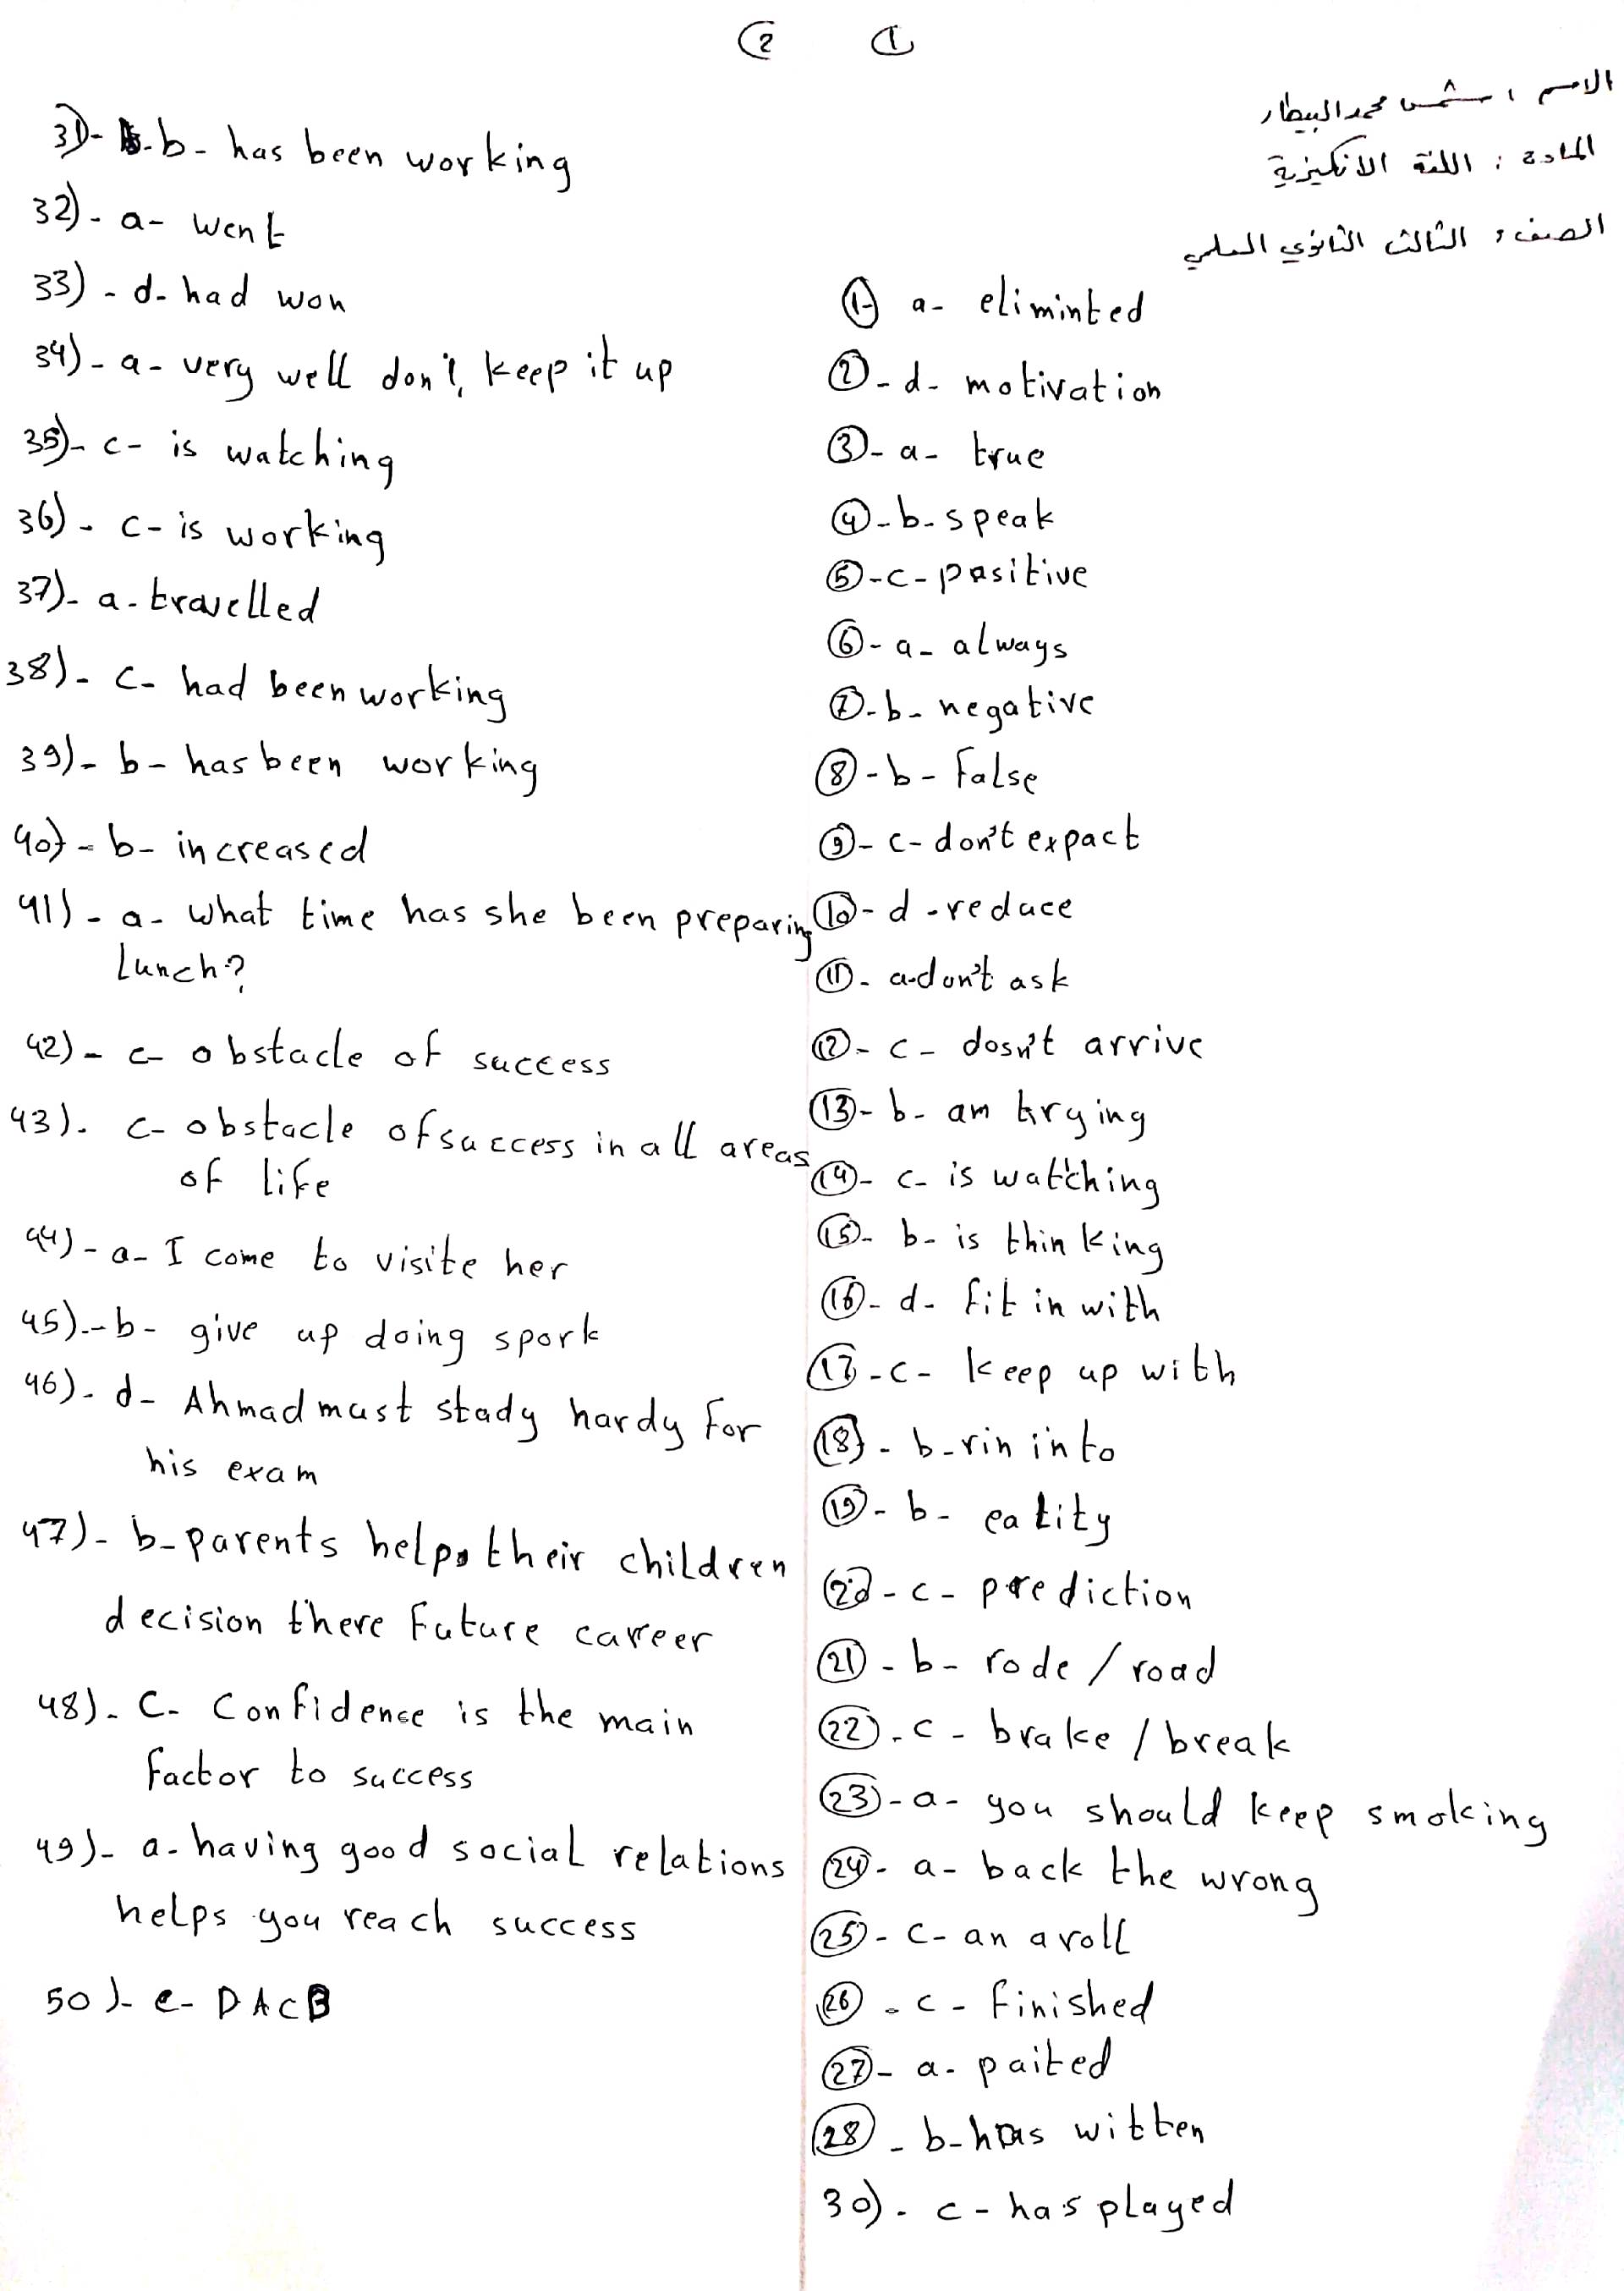 ① ②
الاسم : شمس محمد البيطار
المادة : اللغة الانكيزية
الصف : الثالث الثانوي العلمي
① a- eliminted
②-d- motivation
③-a- true
④-b-speak
⑤-c-pasitive
⑥-a-always
⑦-b-negative
⑧-b-False
⑨-c-don't expact
⑩-d-reduce
⑪-a-don't ask
⑫-c- dosn't arrive
⑬-b- am trying
⑭-c- is watching
⑮-b- is thinking
⑯-d- fit in with
⑰-c- keep up with
⑱-b-rin into
⑲-b- eatity
⑳-c- prediction
㉑-b- rode / road
㉒-c- brake / break
㉓-a- you should keep smoking
㉔-a- back the wrong
㉕-c-an a roll
㉖-c-finished
㉗-a-paited
㉘-b-has witten
30)-c-has played
31)-b-has been working
32)-a- went
33)-d-had won
34)-a-very well don!, keep it up
35)-c- is watching
36)-c-is working
37)-a-travelled
38)-c- had been working
39)-b-has been working
40)-b-increased
41)-a-what time has she been preparing
Lunch?
42)-c- obstacle of success
43)-c-obstacle of success in all areas
of life
44)-a-I come to visite her
45)-b- give up doing spork
46)-d- Ahmad must stady hardy for
his exam
47)-b-parents helps their children
decision there Future career
48)-C- Confidence is the main
factor to success
49)-a-having good social relations
helps you reach success
50)-c-DACB